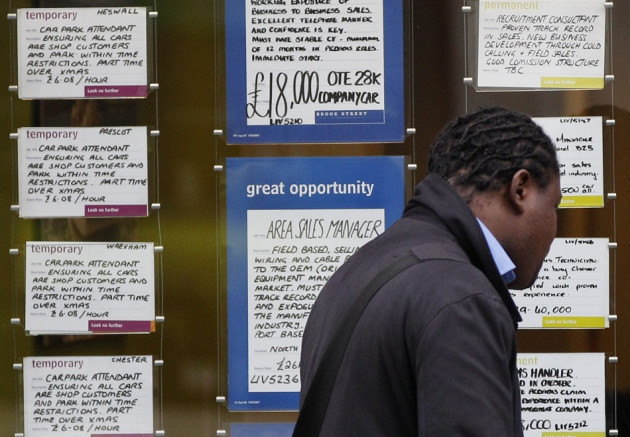 temporary HESWALL
CAR PARK ATTENDANT
ENSURING ALL CARS
ARE SHOP CUSTOMERS
AND PARK WITHIN TIME
RESTRICTIONS. PART TIME
OVER XMAS
£6.08/HOUR
Look no further
temporary PRESCOT
CAR PARK ATTENDANT
ENSURING ALL CARS
ARE SHOP CUSTOMERS AND
PARK WITHIN TIME
RESTRICTIONS. PART TIME
£6.08/HOUR
Look no further
temporary WREXHAM
CARPARK ATTENDANT
ENSURING ALL CARS
ARE SHOP CUSTOMERS AND
PARK WITHIN TIME
RESTRICTIONS. PART TIME
OVER XMAS
£6.08/HOUR
Look no further
temporary CHESTER
CARPARK ATTENDANT
ENSURING ALL CARS
ARE SHOP CUSTOMERS
AND PARK WITHIN TIME
RESTRICTIONS. PART
TIME OVER XMAS
£6.08/HOUR
WORKING EXPOSURE OF
BUSINESS TO BUSINESS SALES.
EXCELLENT TELEPHONE MANNER
AND CONFIDENCE IS KEY.
MUST HAVE STABLE CV - MINIMUM
OF 12 MONTHS IN PREVIOUS ROLES.
IMMEDIATE START.
£18,000 OTE 28K
COMPANY CAR
LIV5210
BROOK STREET
great opportunity
AREA SALES MANAGER
FIELD BASED, SELLING
WIRING AND CABLE
TO THE OEM (ORI
EQUIPMENT MANU
MARKET. MUST
TRACK RECORD
AND EXPOSU
THE MANUF
INDUSTRY.
PORT BASE
NORTH
£26K
LIV5236
permanent
RECRUITMENT CONSULTANT
PROVEN TRACK RECORD
IN SALES. NEW BUSINESS
DEVELOPMENT THROUGH COLD
CALLING + FIELD SALES.
GOOD COMISSION STRUCTURE
TBC
LIV/5167
MANAGER
B2B
SALES
industry.
500
LIV
TECHNICIAN
a busy
with proven
experience.
40,000
permanent
MS HANDLER
IN CHESTER.
PREVIOUS CLAIM
EXPERIENCE WITHIN A
COMPANY.
,000 LIV5212